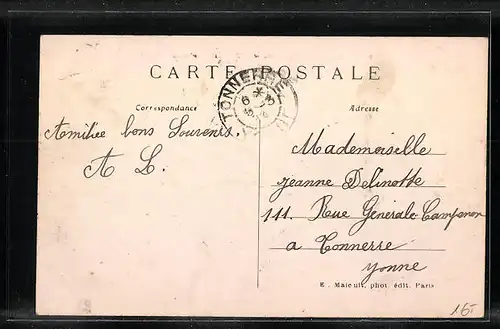 CARTE POSTALE
TONNERRE
Correspondance
Adresse
Amitiée bons Souvenirs.
A L.
Mademoiselle
Jeanne Delinotte
111. Rue Générale Campenon
a Tonnerre
Yonne
E. Maleuit, phot. édit. Paris